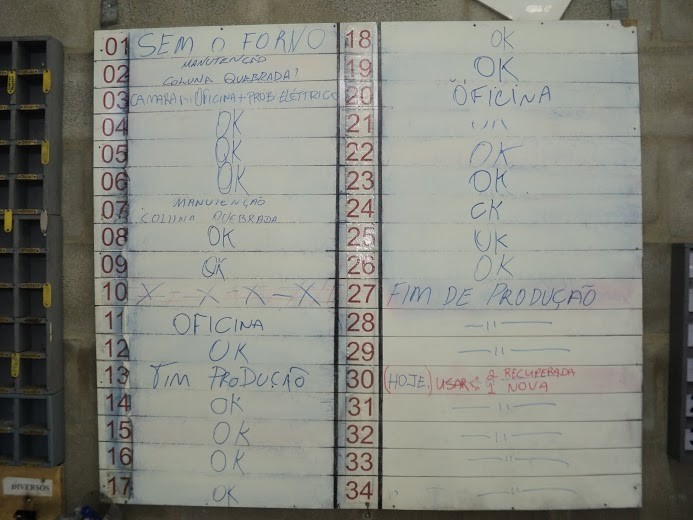 01 SEM O FORNO
02 MANUTENÇÃO
COLUNA QUEBRADA!
03 CAMARA OFICINA + PROB ELÉTTRICO
04 OK
05 OK
06 OK
07 MANUTENÇÃO
COLUNA QUEBRADA
08 OK
09 OK
10 X - X - X - X
11 OFICINA
12 OK
13 FIM PRODUÇÃO
14 OK
15 OK
16 OK
17 OK
18 OK
19 OK
20 OFICINA
21
22 OK
23 OK
24 OK
25 OK
26 OK
27 FIM DE PRODUÇÃO
28 —11—
29 —11—
30 (HOJE) USAR: 2 RECUPERADA
1 NOVA
31 —11—
32 —11—
33 —11—
34 —11—
DIVERSOS